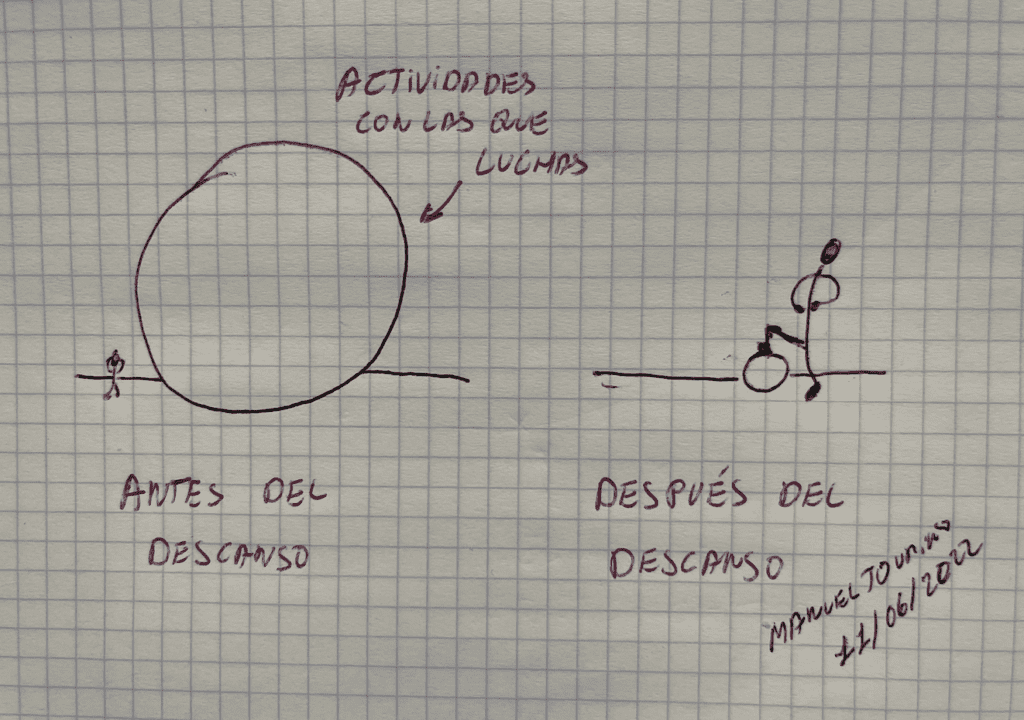 ACTIVIDADES
CON LAS QUE
LUCHAS
ANTES DEL
DESCANSO
DESPUÉS DEL
DESCANSO
MANUEL TOURIÑO
11/06/2022